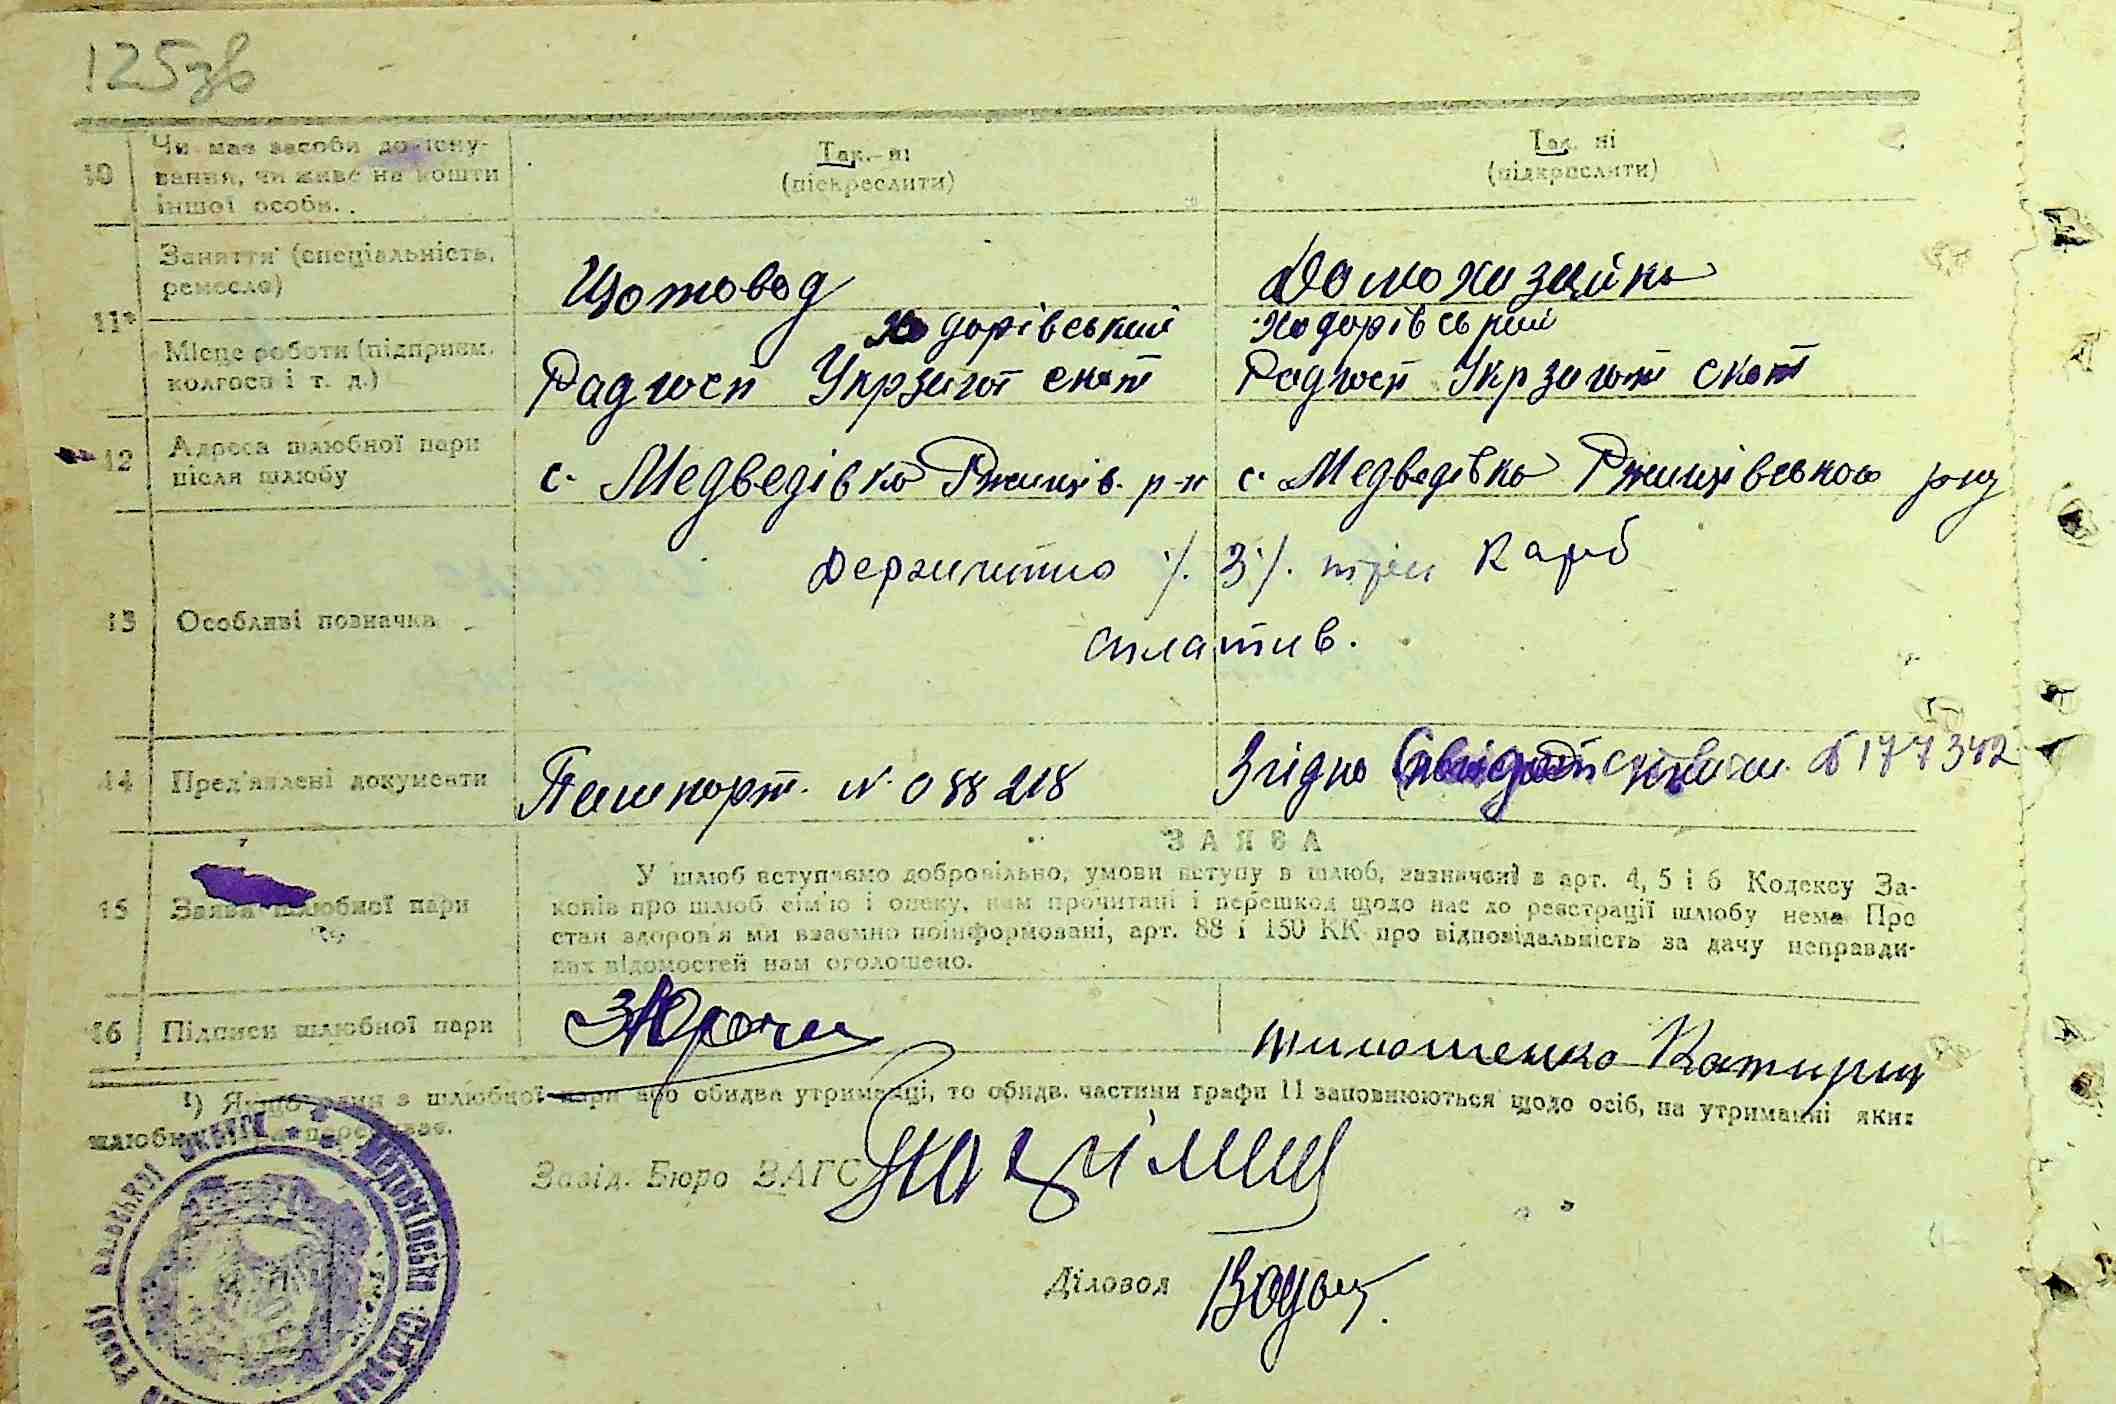 125 зв
10 Чи має засоби до існу-
вання, чи живе на кошти
іншої особи..
Так.-ні
(підкреслити)
Так. ні
(підкреслити)
11¹ Заняття (спеціальність,
ремесло)
Щотовод
Домохазяйка
Місце роботи (підприєм.
колгосп і т. д.)
Ходорівський
Радгосп Укрзагот скот
Ходорівський
Радгосп Укрзагот скот
12 Адреса шлюбної пари
після шлюбу
с. Медведівка Ржищів. р-н
с. Медведівка Ржищівського р-ну
13 Особливі позначки
Держмито /. 3 /. три карб
сплатив.
14 Пред'явлені документи
Пашпорт. № 088218
Згідно 177342
ЗАЯВА
15 Заява шлюбної пари
У шлюб вступаємо добровільно, умови вступу в шлюб, зазначені в арт. 4, 5 і 6 Кодексу За-
конів про шлюб сім'ю і опеку, нам прочитані і перешкод щодо нас до реєстрації шлюбу нема Про
стан здоров'я ми взаємно поінформовані, арт. 88 і 150 КК про відповідальність за дачу неправди-
вих відомостей нам оголошено.
16 Підписи шлюбної пари
Тимошенко Катерин
¹) Якщо один з шлюбної пари або обидва утриманці, то обидв. частини графи 11 заповнюються щодо осіб, на утриманні яких
шлюбна пара перебуває.
Завід. Бюро ЗАГС
Діловод